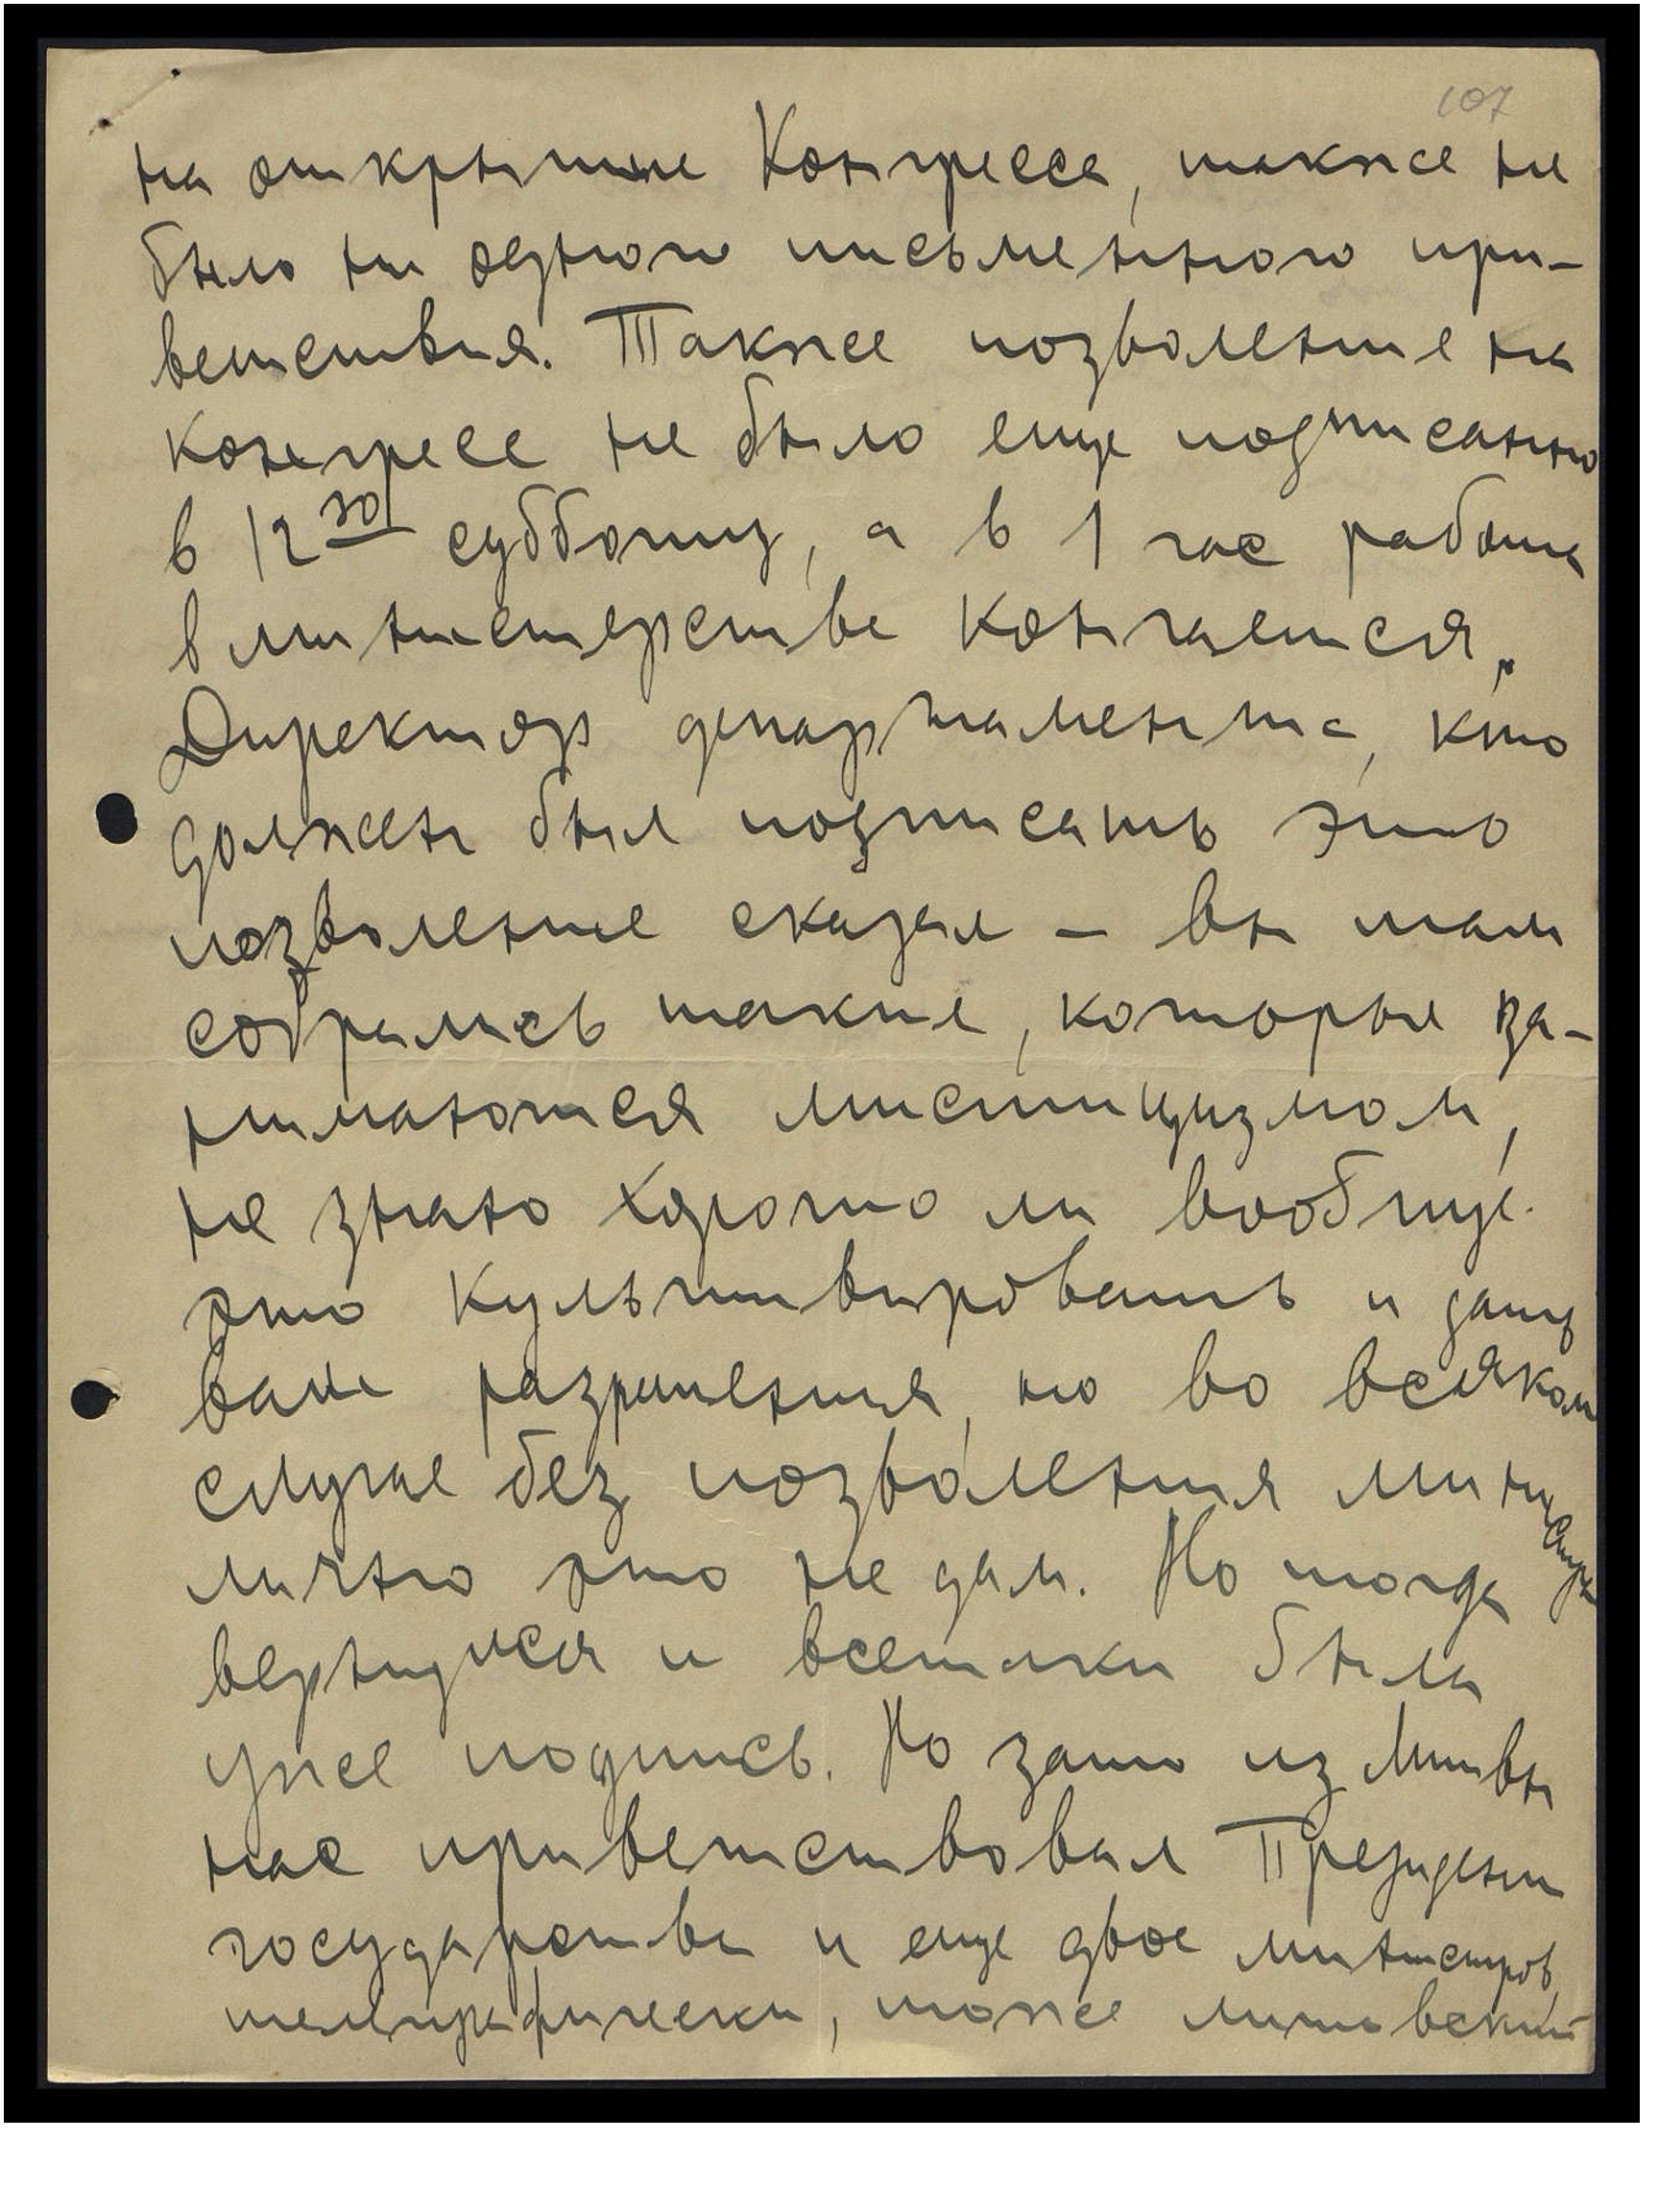 107
на открытие Конгресса, также не
было ни одного письменного при-
ветствия. Также позволение на
конгресс не было еще подписанно
в 12 30 субботу, а в 1 час работа
в министерстве кончается.
Директор департамента, кто
должен был подписать это
позволение сказал – вы там
собрались такие, которые за-
нимаются мистицизмом,
не знаю хорошо ли вообще
это культивировать и дать
вам разрешения, но во всяком
случае без позволения министра
лично это не дам. Но тогда
вернулся и всетаки была
уже подпись. Но зато из Литвы
нас приветствовал Президент
государства и еще двое министров
телеграфически, тоже литовский